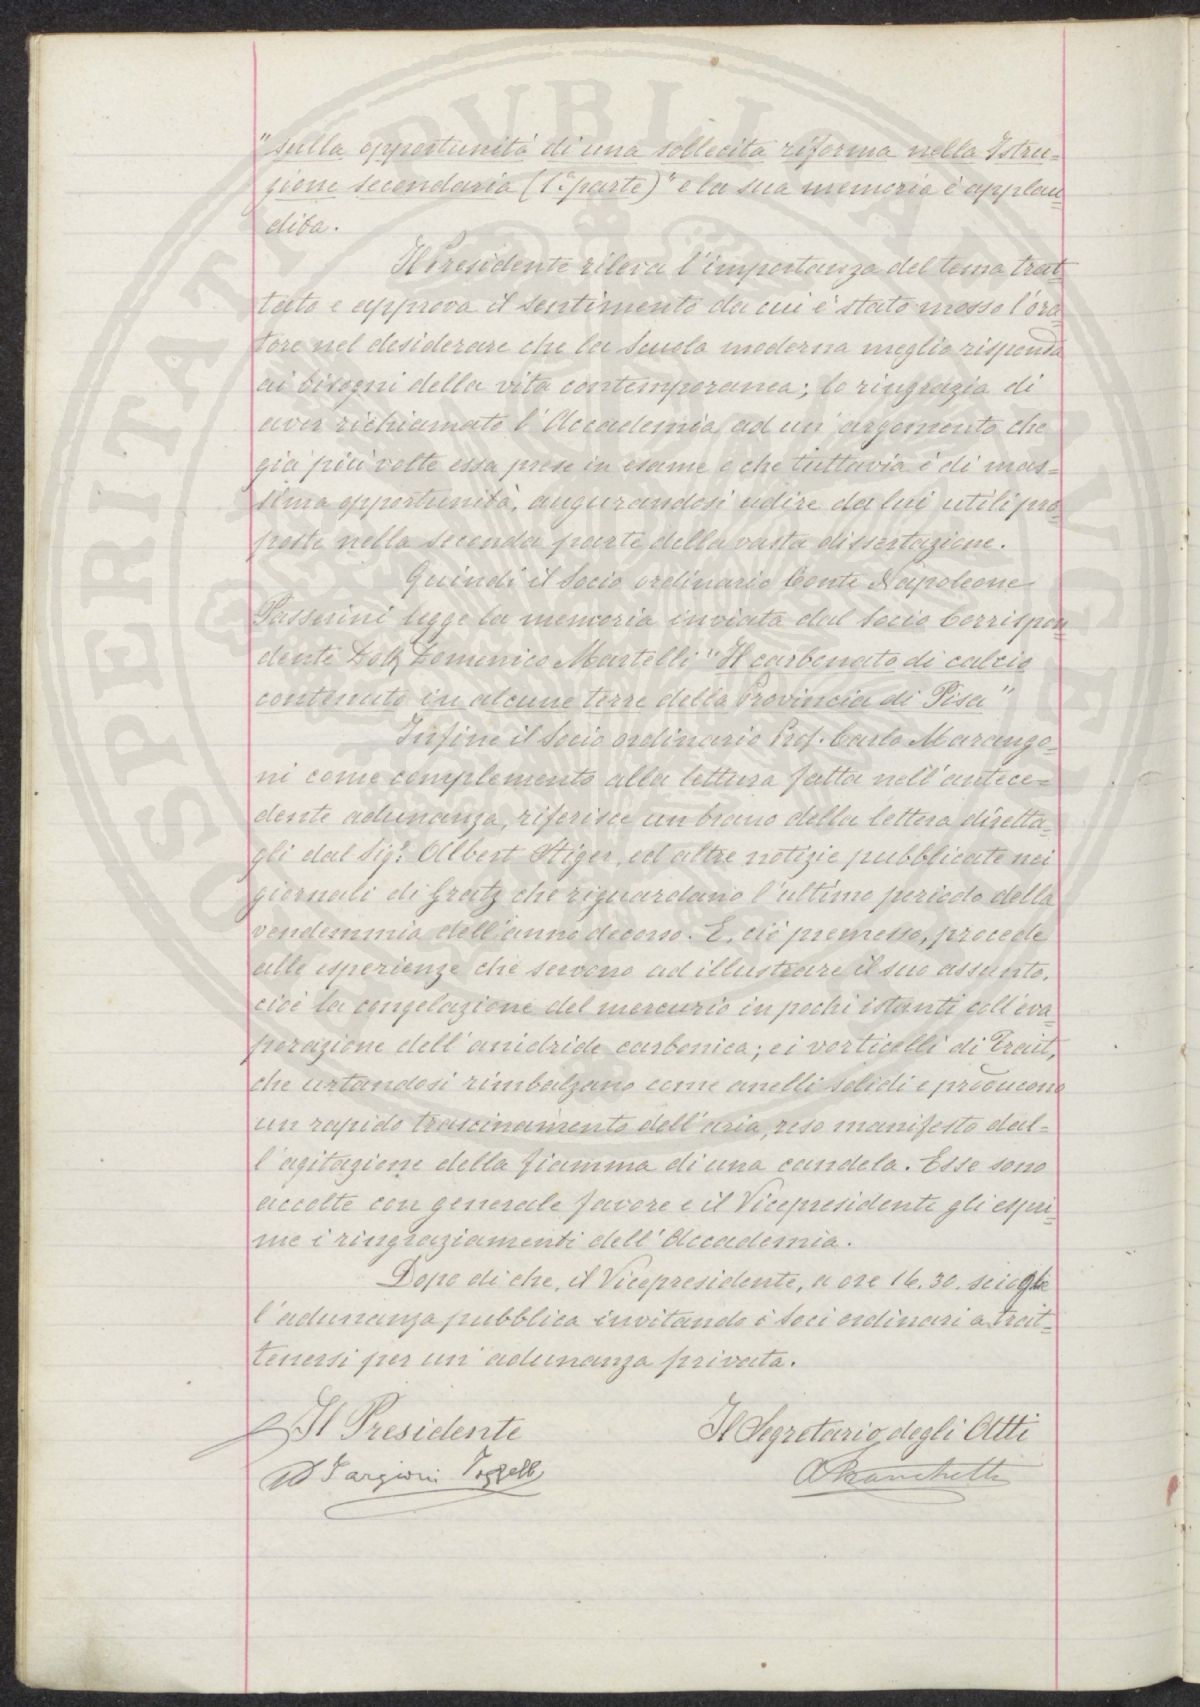 "sulla opportunità di una sollecita riforma nella Istru-
zione secondaria (1a parte)" e la sua memoria è applau-
dita.
Il Presidente rileva l'importanza del tema trat-
tato e approva il sentimento da cui è stato mosso l'ora-
tore nel desiderare che la Scuola moderna meglio risponda
ai bisogni della vita contemporanea; lo ringrazia di
aver richiamato l'Accademia ad un argomento che
già più volte essa prese in esame e che tuttavia è di mas-
sima opportunità, augurandosi udire da lui utili pro-
poste nella seconda parte della vasta dissertazione.
Quindi il Socio ordinario Conte Napoleone
Passerini legge la memoria inviata dal Socio Corrispon-
dente Dott. Domenico Martelli "Il carbonato di calcio
contenuto in alcune terre della Provincia di Pisa"
Infine il Socio ordinario Prof. Carlo Marango-
ni come complemento alla lettura fatta nell'antece-
dente adunanza, riferisce un brano della lettera diretta-
gli dal Sigr. Albert Stiger, ed altre notizie pubblicate nei
giornali di Gratz che riguardano l'ultimo periodo della
vendemmia dell'anno decorso. E, ciò premesso, procede
alle esperienze che servono ad illustrare il suo assunto,
cioè la congelazione del mercurio in pochi istanti coll'eva-
porazione dell'anidride carbonica; e i vorticelli di Trait,
che urtandosi rimbalzano come anelli solidi e producono
un rapido trascinamento dell'aria, reso manifesto dal-
l'agitazione della fiamma di una candela. Esse sono
accolte con generale favore e il Vicepresidente gli espri-
me i ringraziamenti dell'Accademia.
Dopo di che, il Vicepresidente, a ore 16.30. scioglie
l'adunanza pubblica invitando i Soci ordinari a trat-
tenersi per un'adunanza privata.
Il Presidente
Il Segretario degli Atti
Targioni Tozzetti